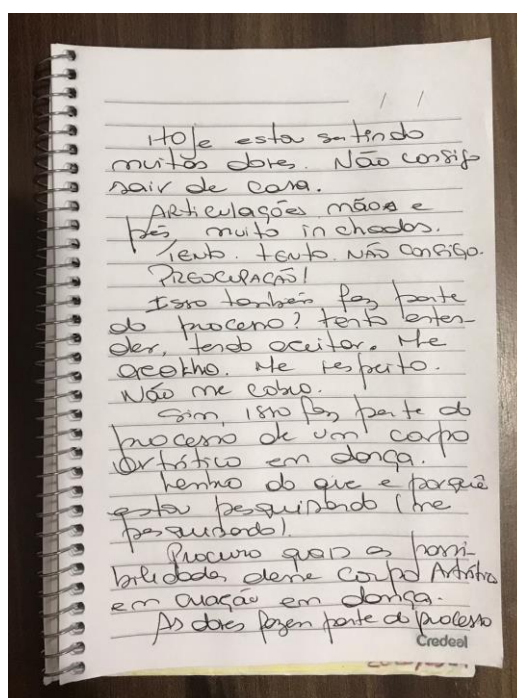 / /
Hoje estou sentindo
muitas dores. Não consigo
sair de casa.
Articulações mãos e
pés muito inchados.
Tento. tento. Não consigo.
PREOCUPAÇÃO!
Isso também faz parte
do processo? tento enten-
der, tento aceitar. Me
acolho. Me respeito.
Não me cobro.
Sim, isso faz parte do
processo de um corpo
Artrítico em dança.
Lembro do que e porquê
estou pesquisando (me
pesquisando).
Procuro quais as possi-
bilidades desse corpo Artrítico
em criação em dança.
As dores fazem parte do processo
Credeal